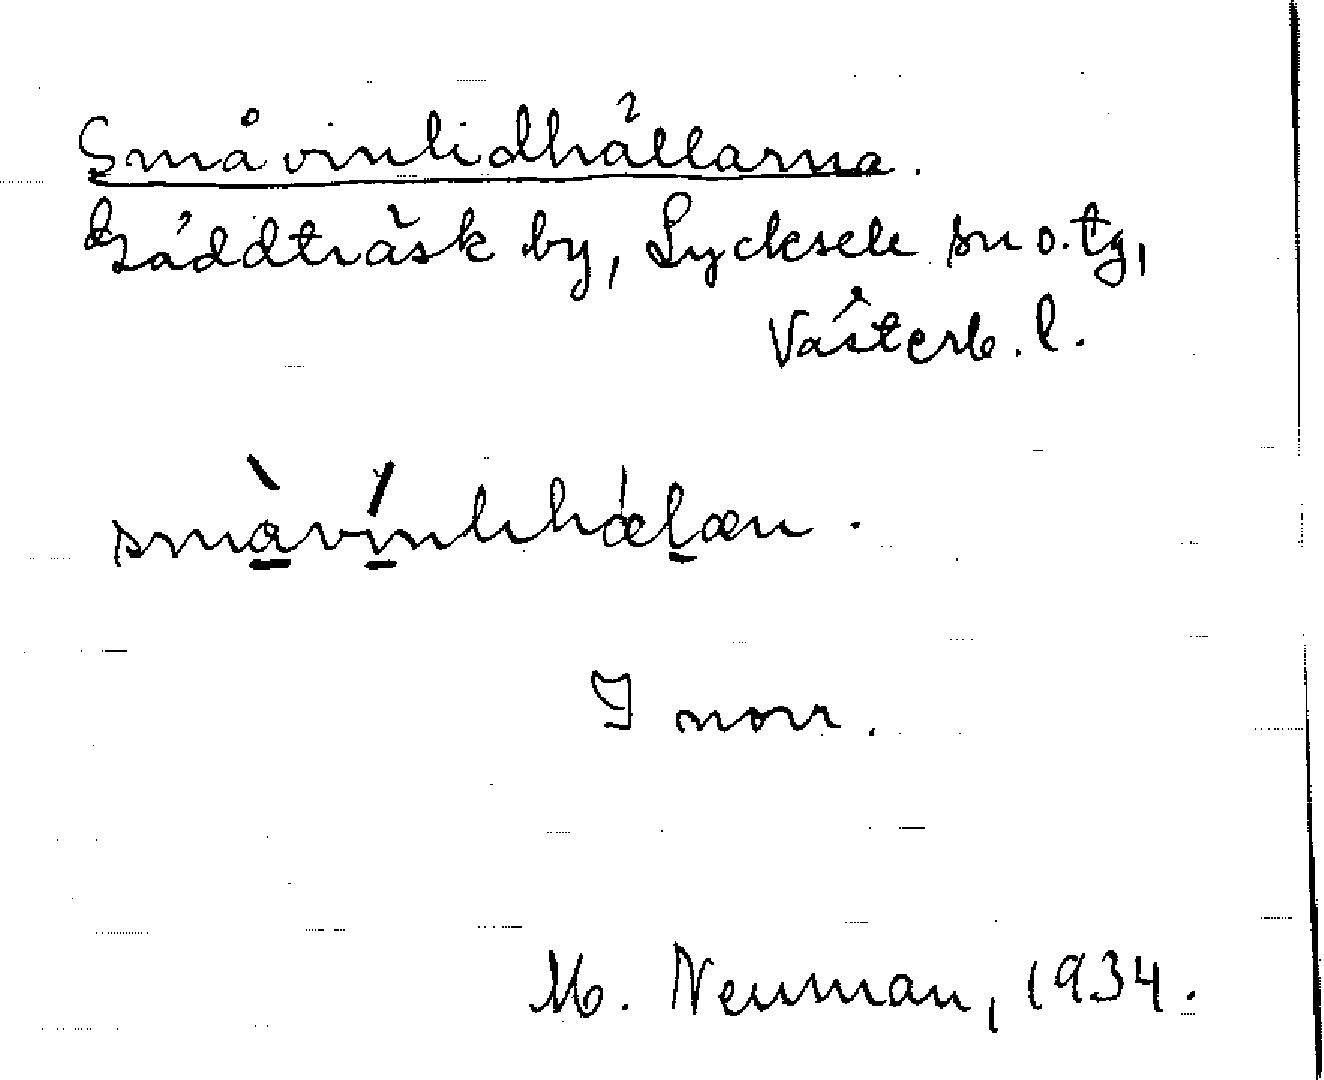 Småvinlidhällarna.
Gäddträsk by, Lycksele sn o. tg,
Västerb. l.
småvinlihælæn.
I norr.
M. Neuman, 1934.